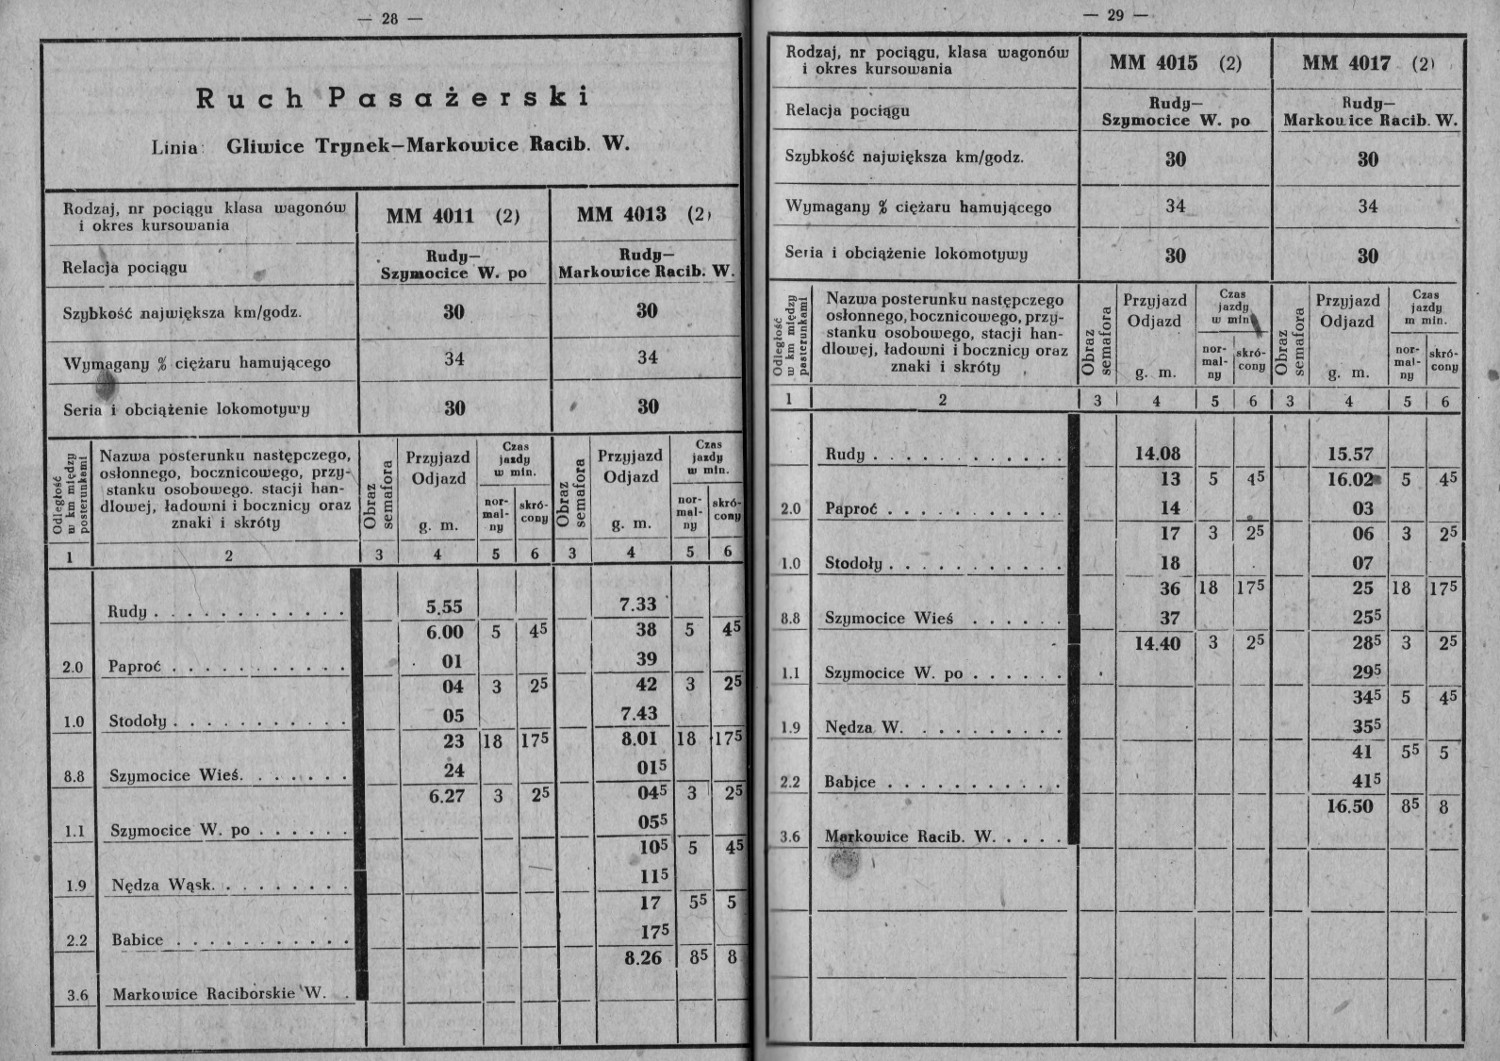 — 28 —
Ruch Pasażerski
Linia: Gliwice Trynek—Markowice Racib. W.
Rodzaj, nr pociągu klasa wagonów i okres kursowania | MM 4011 (2) | MM 4013 (2)
Relacja pociągu | Rudy— Szymocice W. po | Rudy— Markowice Racib. W.
Szybkość największa km/godz. | 30 | 30
Wymagany % ciężaru hamującego | 34 | 34
Seria i obciążenie lokomotywy | 30 | 30
Odległość w km między posterunkami | Nazwa posterunku następczego, osłonnego, bocznicowego, przy- stanku osobowego. stacji han- dlowej, ładowni i bocznicy oraz znaki i skróty | Obraz semafora | Przyjazd Odjazd g. m. | Czas jazdy w min. nor- mal- ny | skró- cony | Obraz semafora | Przyjazd Odjazd g. m. | Czas jazdy w min. nor- mal- ny | skró- cony
1 | 2 | 3 | 4 | 5 | 6 | 3 | 4 | 5 | 6
Rudy . . . . . . . . . . . . | 5.55 | 7.33
6.00 | 5 | 4⁵ | 38 | 5 | 4⁵
2.0 | Paproć . . . . . . . . . . . | 01 | 39
04 | 3 | 2⁵ | 42 | 3 | 2⁵
1.0 | Stodoły . . . . . . . . . . . | 05 | 7.43
23 | 18 | 17⁵ | 8.01 | 18 | 17⁵
8.8 | Szymocice Wieś. . . . . . . | 24 | 01⁵
6.27 | 3 | 2⁵ | 04⁵ | 3 | 2⁵
1.1 | Szymocice W. po . . . . . . | 05⁵
10⁵ | 5 | 4⁵
1.9 | Nędza Wąsk. . . . . . . . . | 11⁵
17 | 5⁵ | 5
2.2 | Babice . . . . . . . . . . . | 17⁵
8.26 | 8⁵ | 8
3.6 | Markowice Raciborskie W. .
— 29 —
Rodzaj, nr pociągu, klasa wagonów i okres kursowania | MM 4015 (2) | MM 4017 (2)
Relacja pociągu | Rudy— Szymocice W. po | Rudy— Markowice Racib. W.
Szybkość największa km/godz. | 30 | 30
Wymagany % ciężaru hamującego | 34 | 34
Seria i obciążenie lokomotywy | 30 | 30
Odległość w km między posterunkami | Nazwa posterunku następczego osłonnego, bocznicowego, przy- stanku osobowego, stacji han- dlowej, ładowni i bocznicy oraz znaki i skróty | Obraz semafora | Przyjazd Odjazd g. m. | Czas jazdy w min. nor- mal- ny | skró- cony | Obraz semafora | Przyjazd Odjazd g. m. | Czas jazdy m min. nor- mal- ny | skró- cony
1 | 2 | 3 | 4 | 5 | 6 | 3 | 4 | 5 | 6
Rudy . . . . . . . . . . . . | 14.08 | 15.57
13 | 5 | 4⁵ | 16.02 | 5 | 4⁵
2.0 | Paproć . . . . . . . . . . . | 14 | 03
17 | 3 | 2⁵ | 06 | 3 | 2⁵
1.0 | Stodoły . . . . . . . . . . . | 18 | 07
36 | 18 | 17⁵ | 25 | 18 | 17⁵
8.8 | Szymocice Wieś . . . . . . | 37 | 25⁵
14.40 | 3 | 2⁵ | 28⁵ | 3 | 2⁵
1.1 | Szymocice W. po . . . . . . | 29⁵
34⁵ | 5 | 4⁵
1.9 | Nędza W. . . . . . . . . . | 35⁵
41 | 5⁵ | 5
2.2 | Babice . . . . . . . . . . . | 41⁵
16.50 | 8⁵ | 8
3.6 | Markowice Racib. W. . . . .